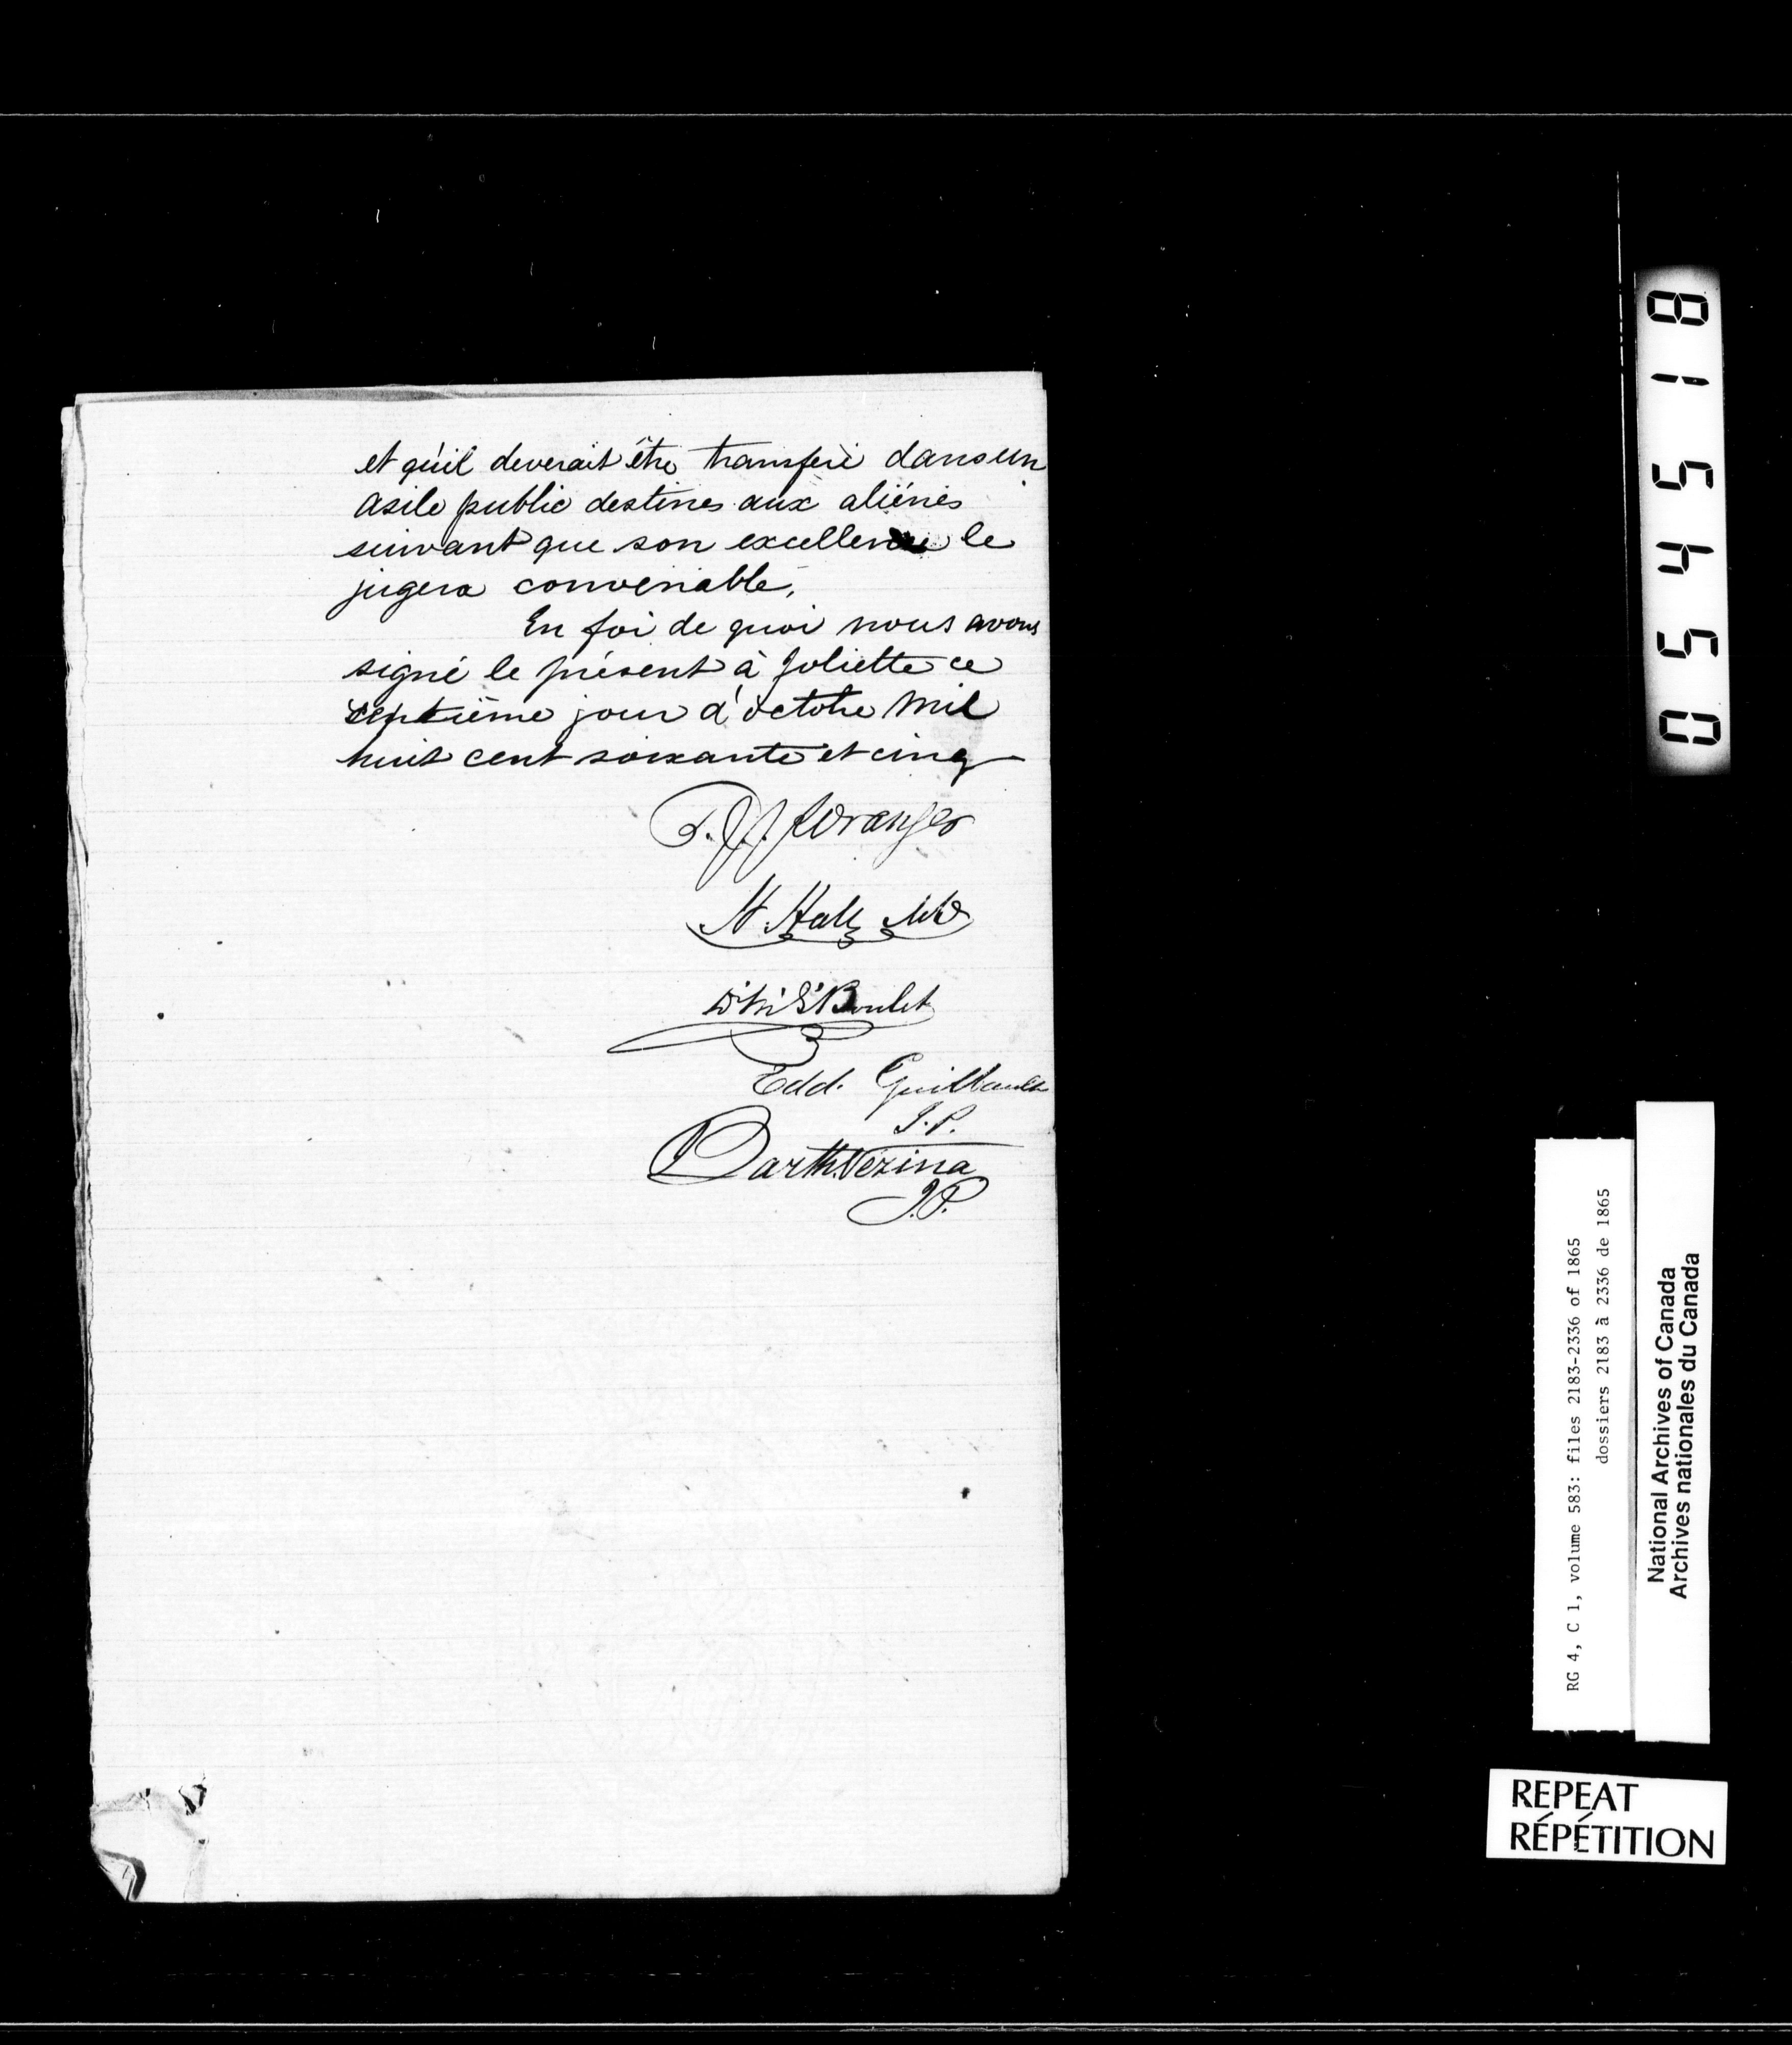 et qu'il deverait être transferé dans un
asile public destines aux aliénés
suivant que son excellence le
jugera convenable,
En foi de quoi nous avons
signé le présent à Joliette ce
septième jour d'octobre mil
huit cent soixante et cinq
T. J. J. Loranger
H. Hall MD
Boulet
Edd. Guilbault
J.P.
Barth. Vezina
J.P.
054518
RG 4, C 1, volume 583: files 2183-2336 of 1865
dossiers 2183 à 2336 de 1865
National Archives of Canada
Archives nationales du Canada
REPEAT
RÉPÉTITION